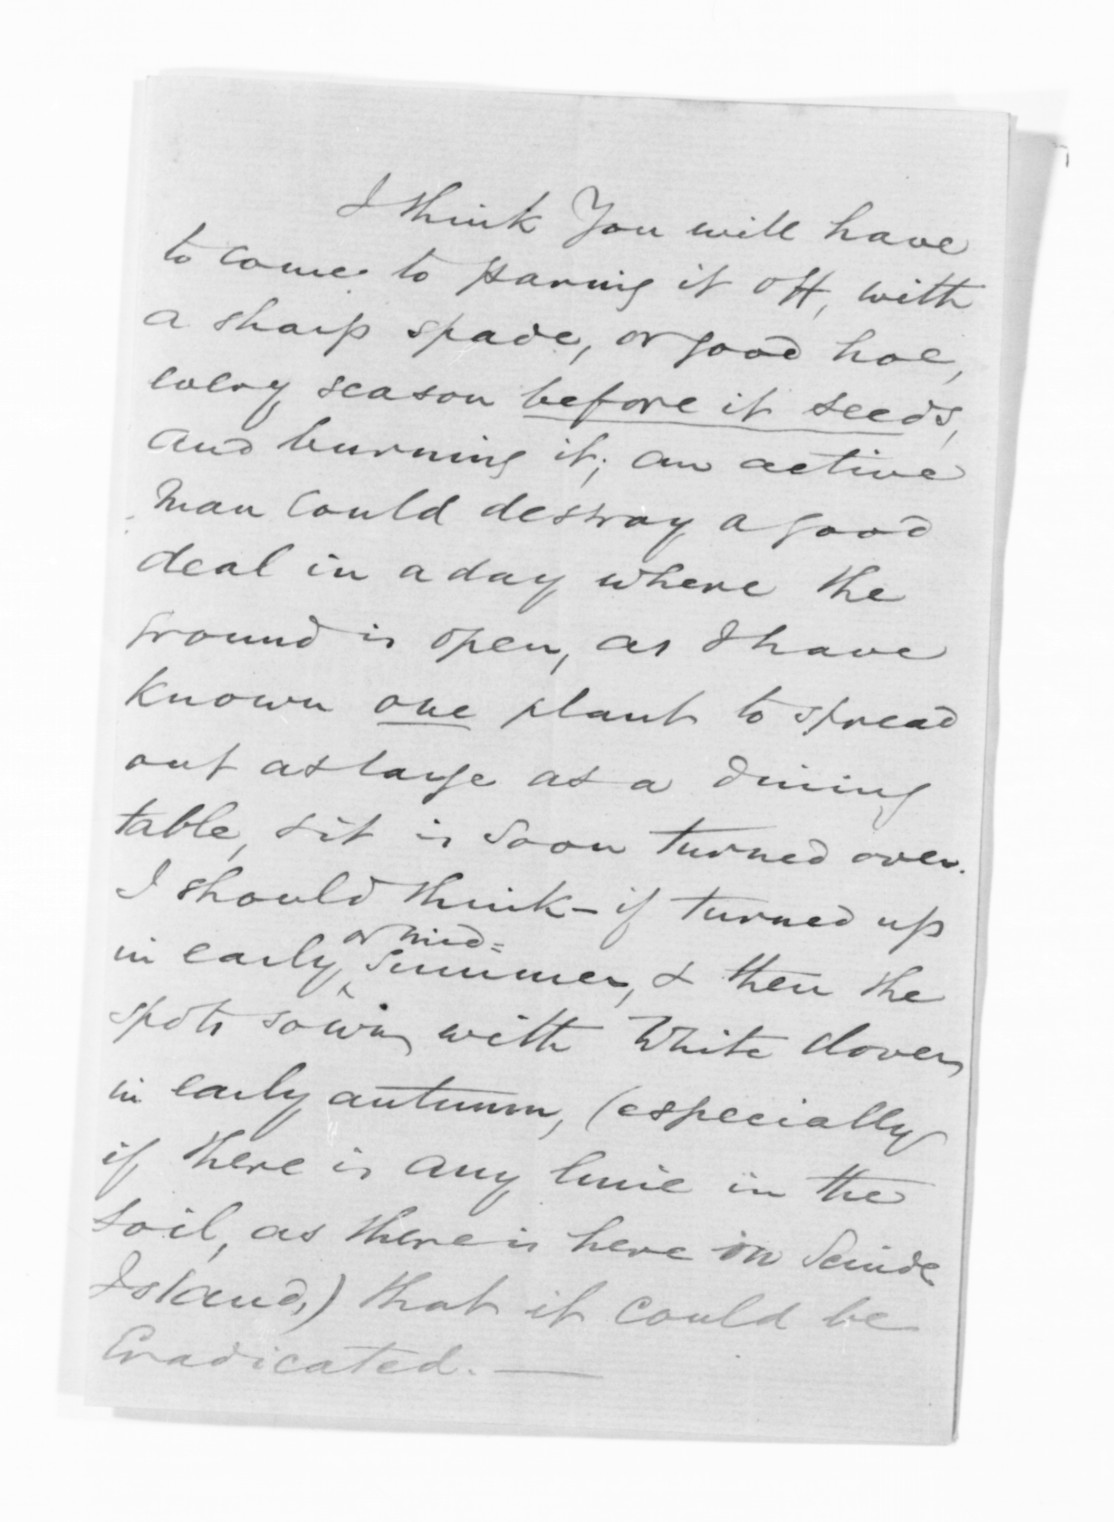 I think You will have
to come to paring it off, with
a sharp spade, or good hoe,
every season before it seeds,
and burning it; an active
man could destroy a good
deal in a day where the
ground is open, as I have
known one plant to spread
out as large as a dining
table, & it is soon turned over.
I should think - if turned up
in early, or mid= summer, & then the
spots sown with White Clover,
in early autumn, (especially
if there is any lime in the
soil, as there is here in Scinde
Island,) that it could be
Eradicated. —